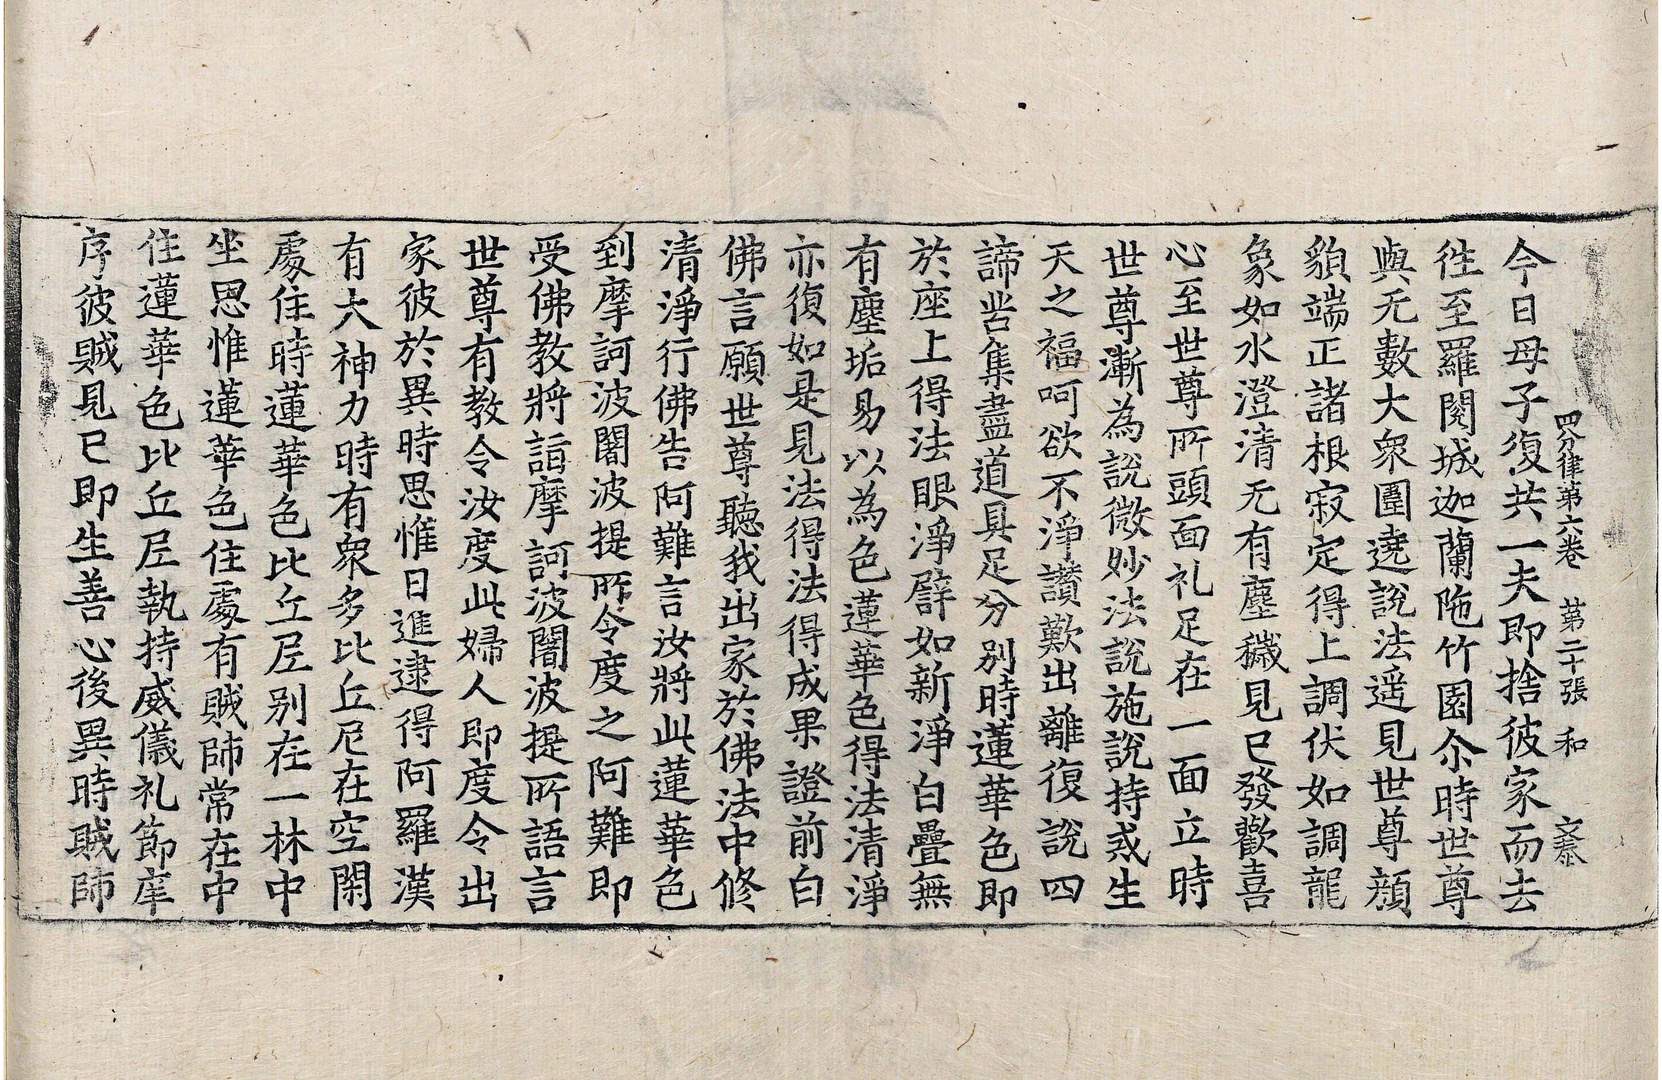 四分律第六卷　第二十張　和　文泰
今日母子復共一夫即捨彼家而去
徃至羅閱城迦蘭陁竹園尒時世尊
與无數大衆圍遶說法遥見世尊顔
貌端正諸根寂定得上調伏如調龍
象如水澄清无有塵穢見已發歡喜
心至世尊所頭面礼足在一面立時
世尊漸為說微妙法說施說持戒生
天之福呵欲不淨讚歎出離復說四
諦苦集盡道具足分別時蓮華色即
於座上得法眼淨譬如新淨白疊無
有塵垢易以為色蓮華色得法清淨
亦復如是見法得法得成果證前白
佛言願世尊聽我出家於佛法中修
清淨行佛告阿難言汝將此蓮華色
到摩訶波闍波提所令度之阿難即
受佛教將詣摩訶波闍波提所語言
世尊有教令汝度此婦人即度令出
家彼於異時思惟日進逮得阿羅漢
有大神力時有衆多比丘尼在空閑
處住時蓮華色比丘尼别在一林中
坐思惟蓮華色住處有賊師常在中
住蓮華色比丘尼執持威儀礼節庠
序彼賊見已即生善心後異時賊師